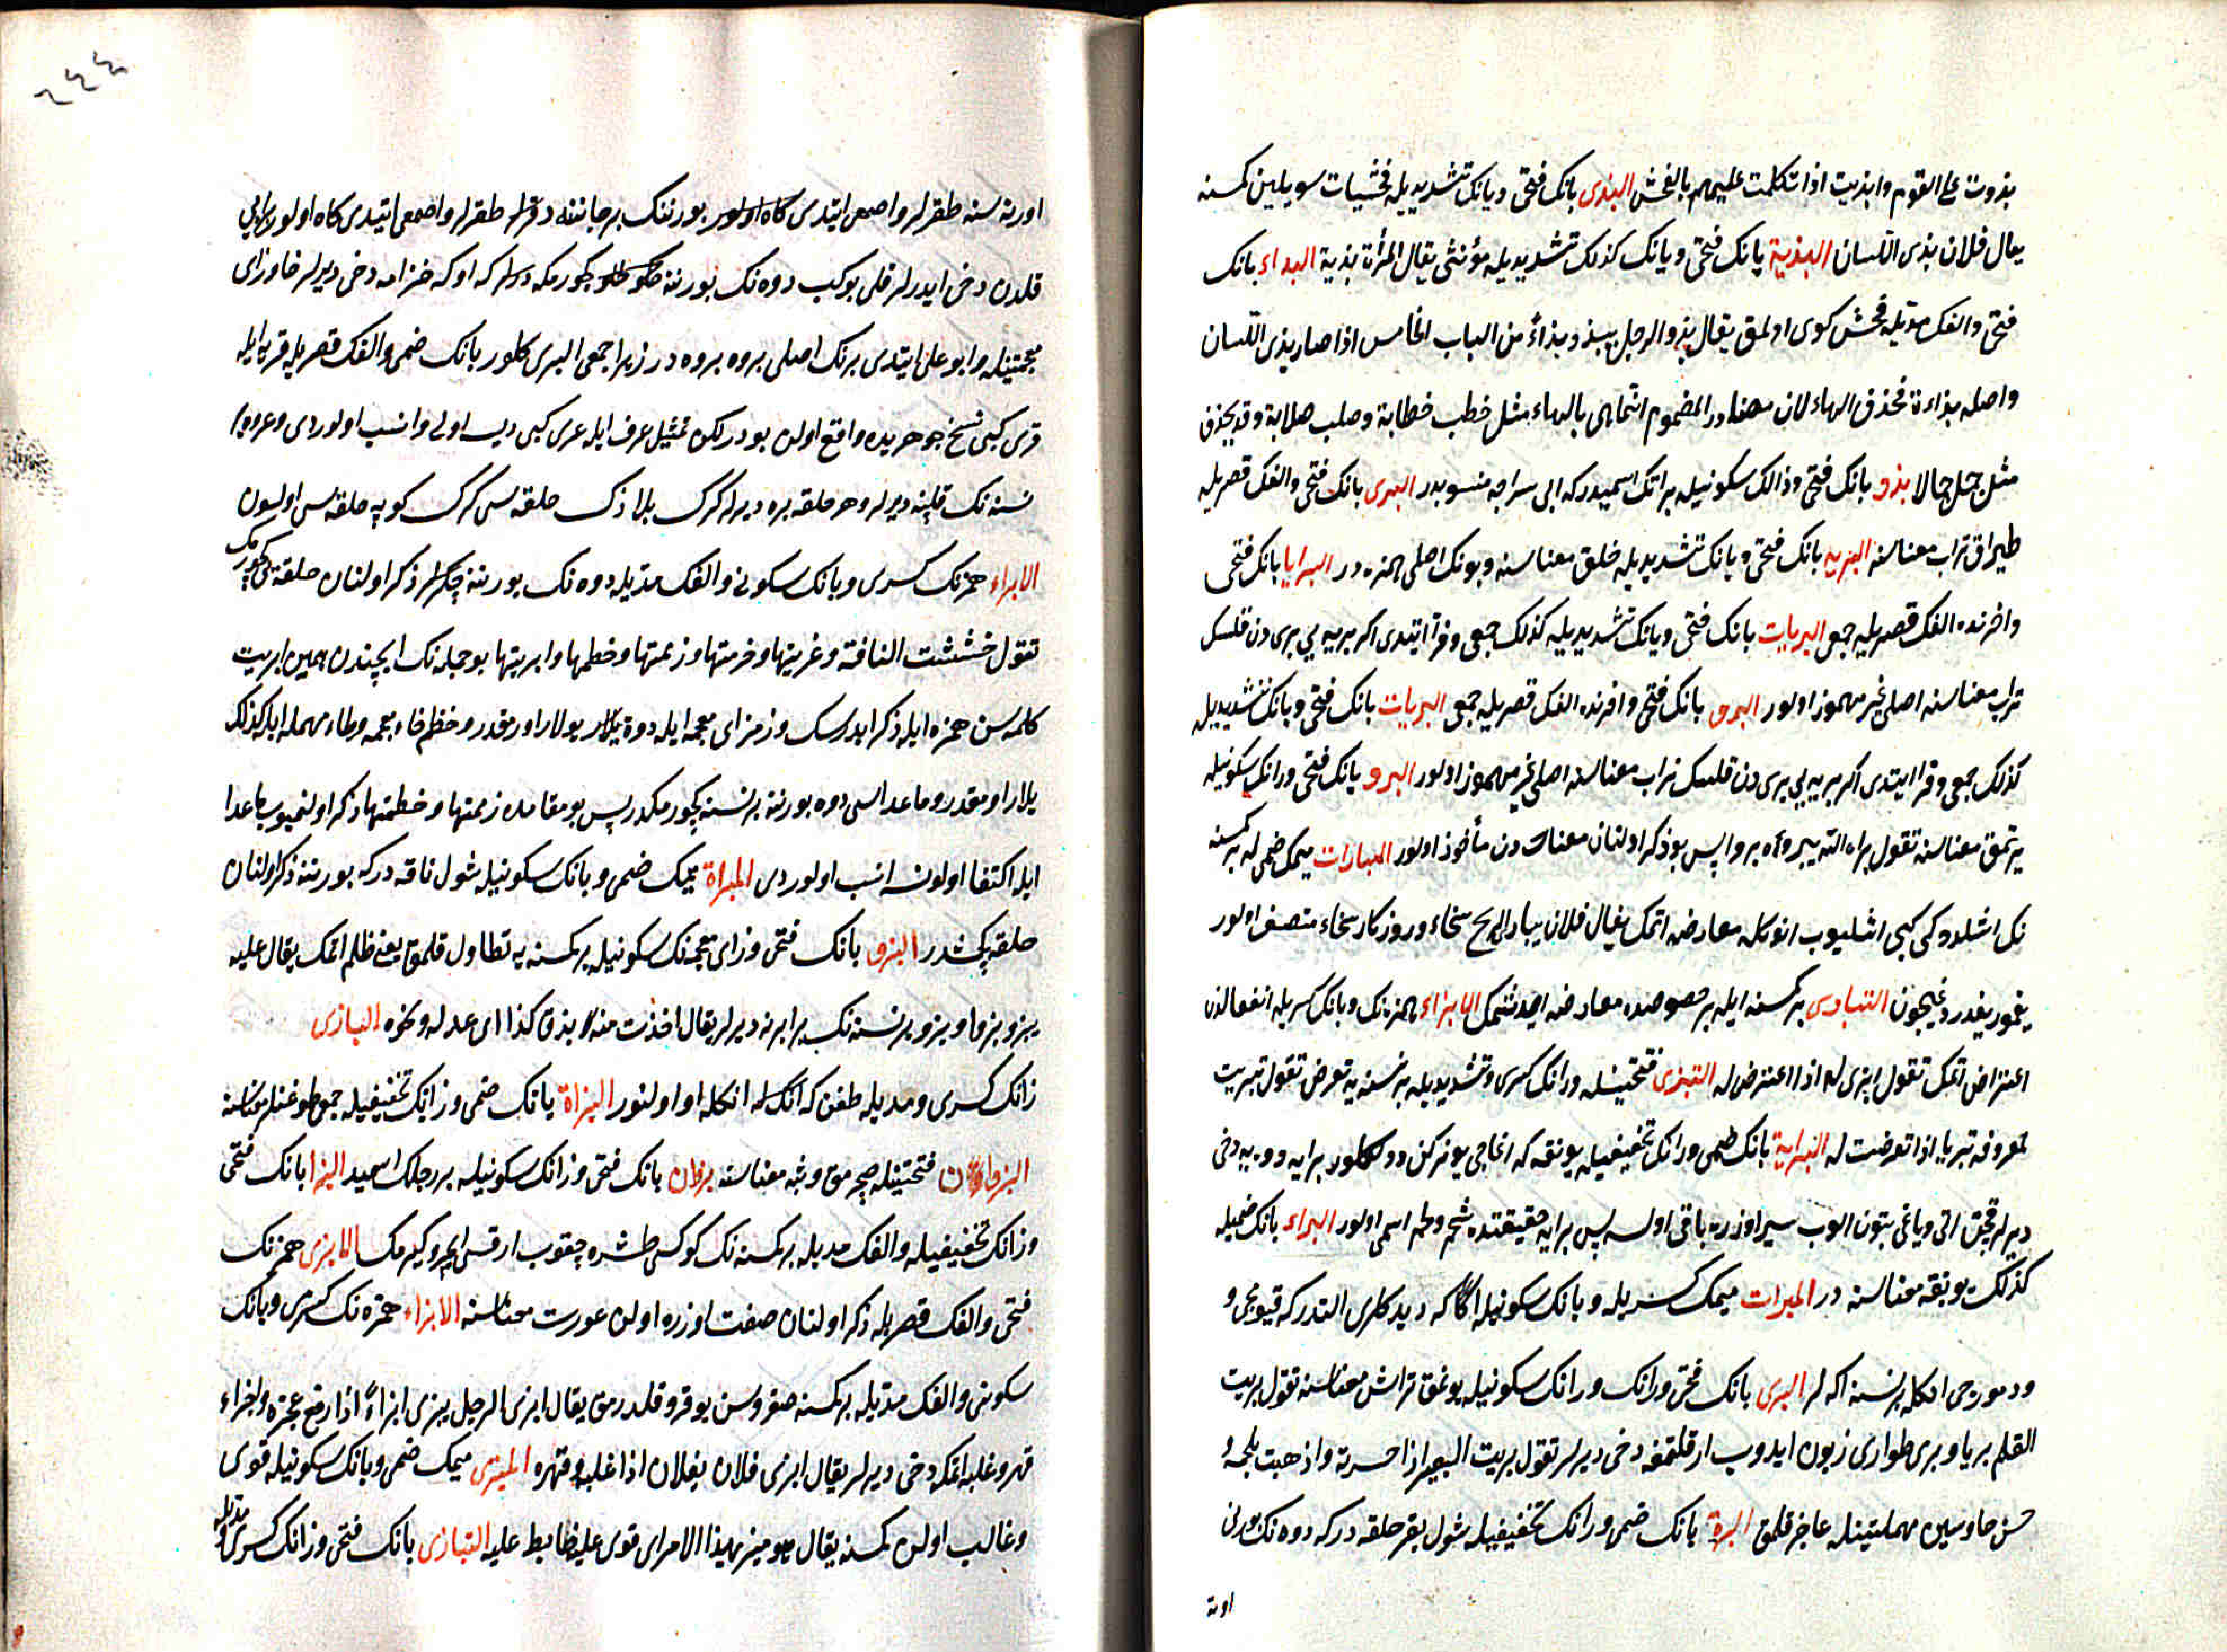 بذوت على القوم وابذيت اذا تكلمت عليهم بالفحش البذى بانك فتحى ويانك تشديديله فحشيات سويلين كمسنه
يقال فلان بذى اللسان البذية بانك فتحى ويانك كذلك تشديديله مؤنثى يقال امرأة بذية البذاء بانك
فتحى والفك مديله فحش كوى اولمق يقال بذو الرجل يبذو بذاءً من الباب الخامس اذا صار بذى اللسان
واصله بذاءة فحذف الهاء لان مصادر المضموم انما هى بالهاء مثل خطب خطابة وصلب صلابة وقد يحذف
مثل جمل جمالا بذو بانك فتحى وذالك سكونيله براتك اسميدر كه ابى سراجه منسوبدر البرى بانك فتحى والفك قصريله
طپراق تراب معناسنه البريه بانك فتحى ويانك تشديديله خلق معناسنه وبونك اصلى همزه در البرايا بانك فتحى
واخرنده الفك قصريله جمعى البريات بانك فتحى ويانك تشديديله كذلك جمعى وفرا ايتدى اكر بريه يى برى دن قلسك
تراب معناسنه اصلى غير مهموز اولور البرو بانك فتحى واخرنده الفك قصريله جمعى البريات بانك فتحى ويانك تشديديله
كذلك جمعى وفرا ايتدى اكر بريه يى برى دن قلسك تراب معناسنه اصلى غير مهموز اولور البرو بانك فتحى ورانك سكونيله
يرتمق معناسنه تقول براه الله يبروه بروا پس بو ذكر اولنان معنادن مأخوذ اولور المبارات ميمك ضمى له بر كمسنه
نك اشلدوكى كبى اشليوب انوكله معارضه اتمك يقال فلان يبارى الريح سخاء وروزكار سخاء متصف اولور
يغمور يغدردغيچون التبارى بر كمسنه ايله بر خصوصده معارضه ايدشمك الابراء همزه نك وبانك كسريله انفعالدن
اعتراض اتمك تقول ابرى له اذا اعترض له التبرى فتحتينله ورانك كسرى وتشديديله بر نسنه يه تعرض تقول تبريت
لمعروفه تبريا اذا تعرضت له البراية بانك ضمى ورانك تخفيفيله يونقه كه اغاجى يونركن دوكلور برايه دوه يه دخى
ديرلر قچن اتى وياغى بتون الوب سير اوزره باقى اولسه پس برايه حقيقتده شحم ولحم اسمى اولور البراء بانك ضميله
كذلك يونقه معناسنه در المبرات ميمك كسريله وبانك سكونيله اكا كه ديدكلرى التدر كه قيومجى و
ودمورجى انكله بر نسنه اكه لر البرى بانك فتحى ورانك سكونيله يونمق تراش معناسنه تقول بريت
القلم بريا وبرى طوارى زبون ايدوب ارقلتمغه دخى ديرلر تقول بريت البعير اذا حسرته واذهبت لحمه و
حسن حا وسين مهملتينله عاجز قلمق البرة بانك ضمى ورانك تخفيفيله شول بقر حلقه در كه دوه نك بورنى
اورته
٢٤٤
اورته سنه طقرلر واصمعى ايتدى بورننك بر جاننده طقرلر واصمعى ايتدى كاه اولور
قلدن دخى ايدرلر قلى بوكب دوه نك بورننه كچورمكه كه اوكه خزامه دخى ديرلر خا وزاى
معجمتينله وابو على ايتدى برنك اصلى بروه بروه در زيرا جمعى البرى كلور بانك ضمى والفك قصريله قريه ايله
قرى كبى نسخ جوهريده واقع اولن بودر لكن تمثيل عرف ايله عرى كبى ديسه اولى وانسب اولوردى وعروه
نسنه نك قلپنه ديرلر وهر حلقه بره ديرلر كرك بلازك حلقه سى كرك كوپه حلقه سى اولسون
الابراء همزنك كسرى وبانك سكونى والفك مديله دوه نك بورننه چكرلر ذكر اولنان حلقه يى كچورمك
تقول خششت الناقة وعرنتها وخزمتها وزممتها وخطمتها وابريتها بو جمله نك ايچندن همين ابريت
كلمه سن همزه ايله ذكر ايدرسك وزم زاى معجمه ايله دوه يولار اورمقدر وخطم خاء معجمه وطاء مهمله ايله كذلك
يولار اورمقدر وماعداسى دوه بورننه بر نسنه كچورمكدر پس بو مقامده زممتها وخطمتها ذكر اولنميوب ماعدا
ايله اكتفا اولونسه انسب اولوردى المبراة ميمك ضمى وبانك سكونيله شول ناقه در كه بورننه ذكر اولنان
حلقه چكشدر البزو بانك فتحى وزاى معجمه نك سكونيله بر كمسنه يه تطاول قلمق يعنى ظلم اتمك يقال عليه
يبزو بزوا وبزو بر نسنه نك برابرنه ديرلر يقال اخذت منه بزو كذا اى عدله ونحوه البازى
زانك كسرى ومديله طغن كه انكله او اولنور البزاة بانك ضمى وزانك تخفيفيله جمعى طوغنلر معناسنه
البزوان فتحتينله صچرمق وثبه معناسنه بزوان بانك فتحى وزانك سكونيله بر رجلك اسميدر البزا بانك فتحى
وزانك تخفيفيله والفك مديله بر كمسنه نك كوكسى طشره چقوب ارقسى ايچرو كيرمك الابزى همزنك
فتحى والفك قصريله ذكر اولنان صفت اوزره اولن عورت معناسنه الابزاء همزه نك كسرى وبانك
سكونى والفك مديله بر كمسنه صغروسن يوقرو قلدرمق يقال ابزى الرجل يبزى ابزاءً اذا رفع عجزه وابزاء
قهر وغلبه اتمكه دخى ديرلر يقال ابزى فلان بفلان اذا غلبه وقهره المبزى ميمك ضمى وبانك سكونيله قوى
وغالب اولن كمسنه يقال هو مبز بهذا الامر اى قوى عليه ضابط عليه التبازى بانك فتحى وزانك كسرى مديله